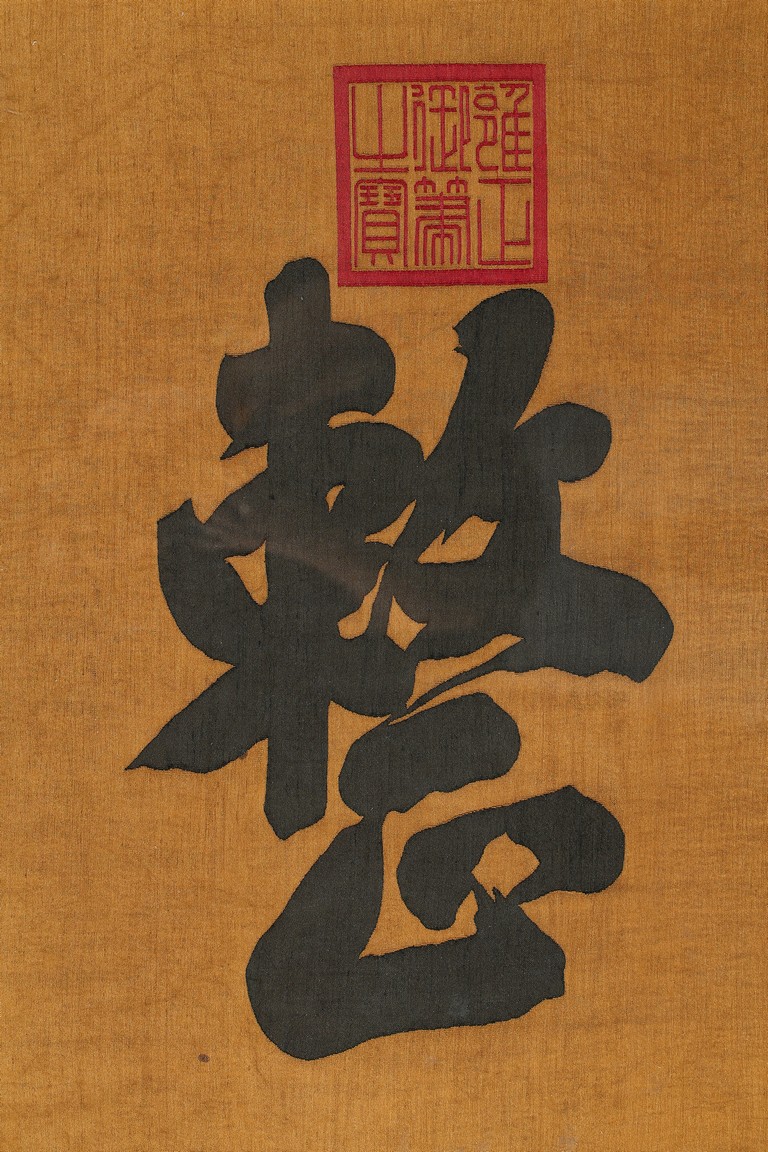 雍正
御筆
之寶
整